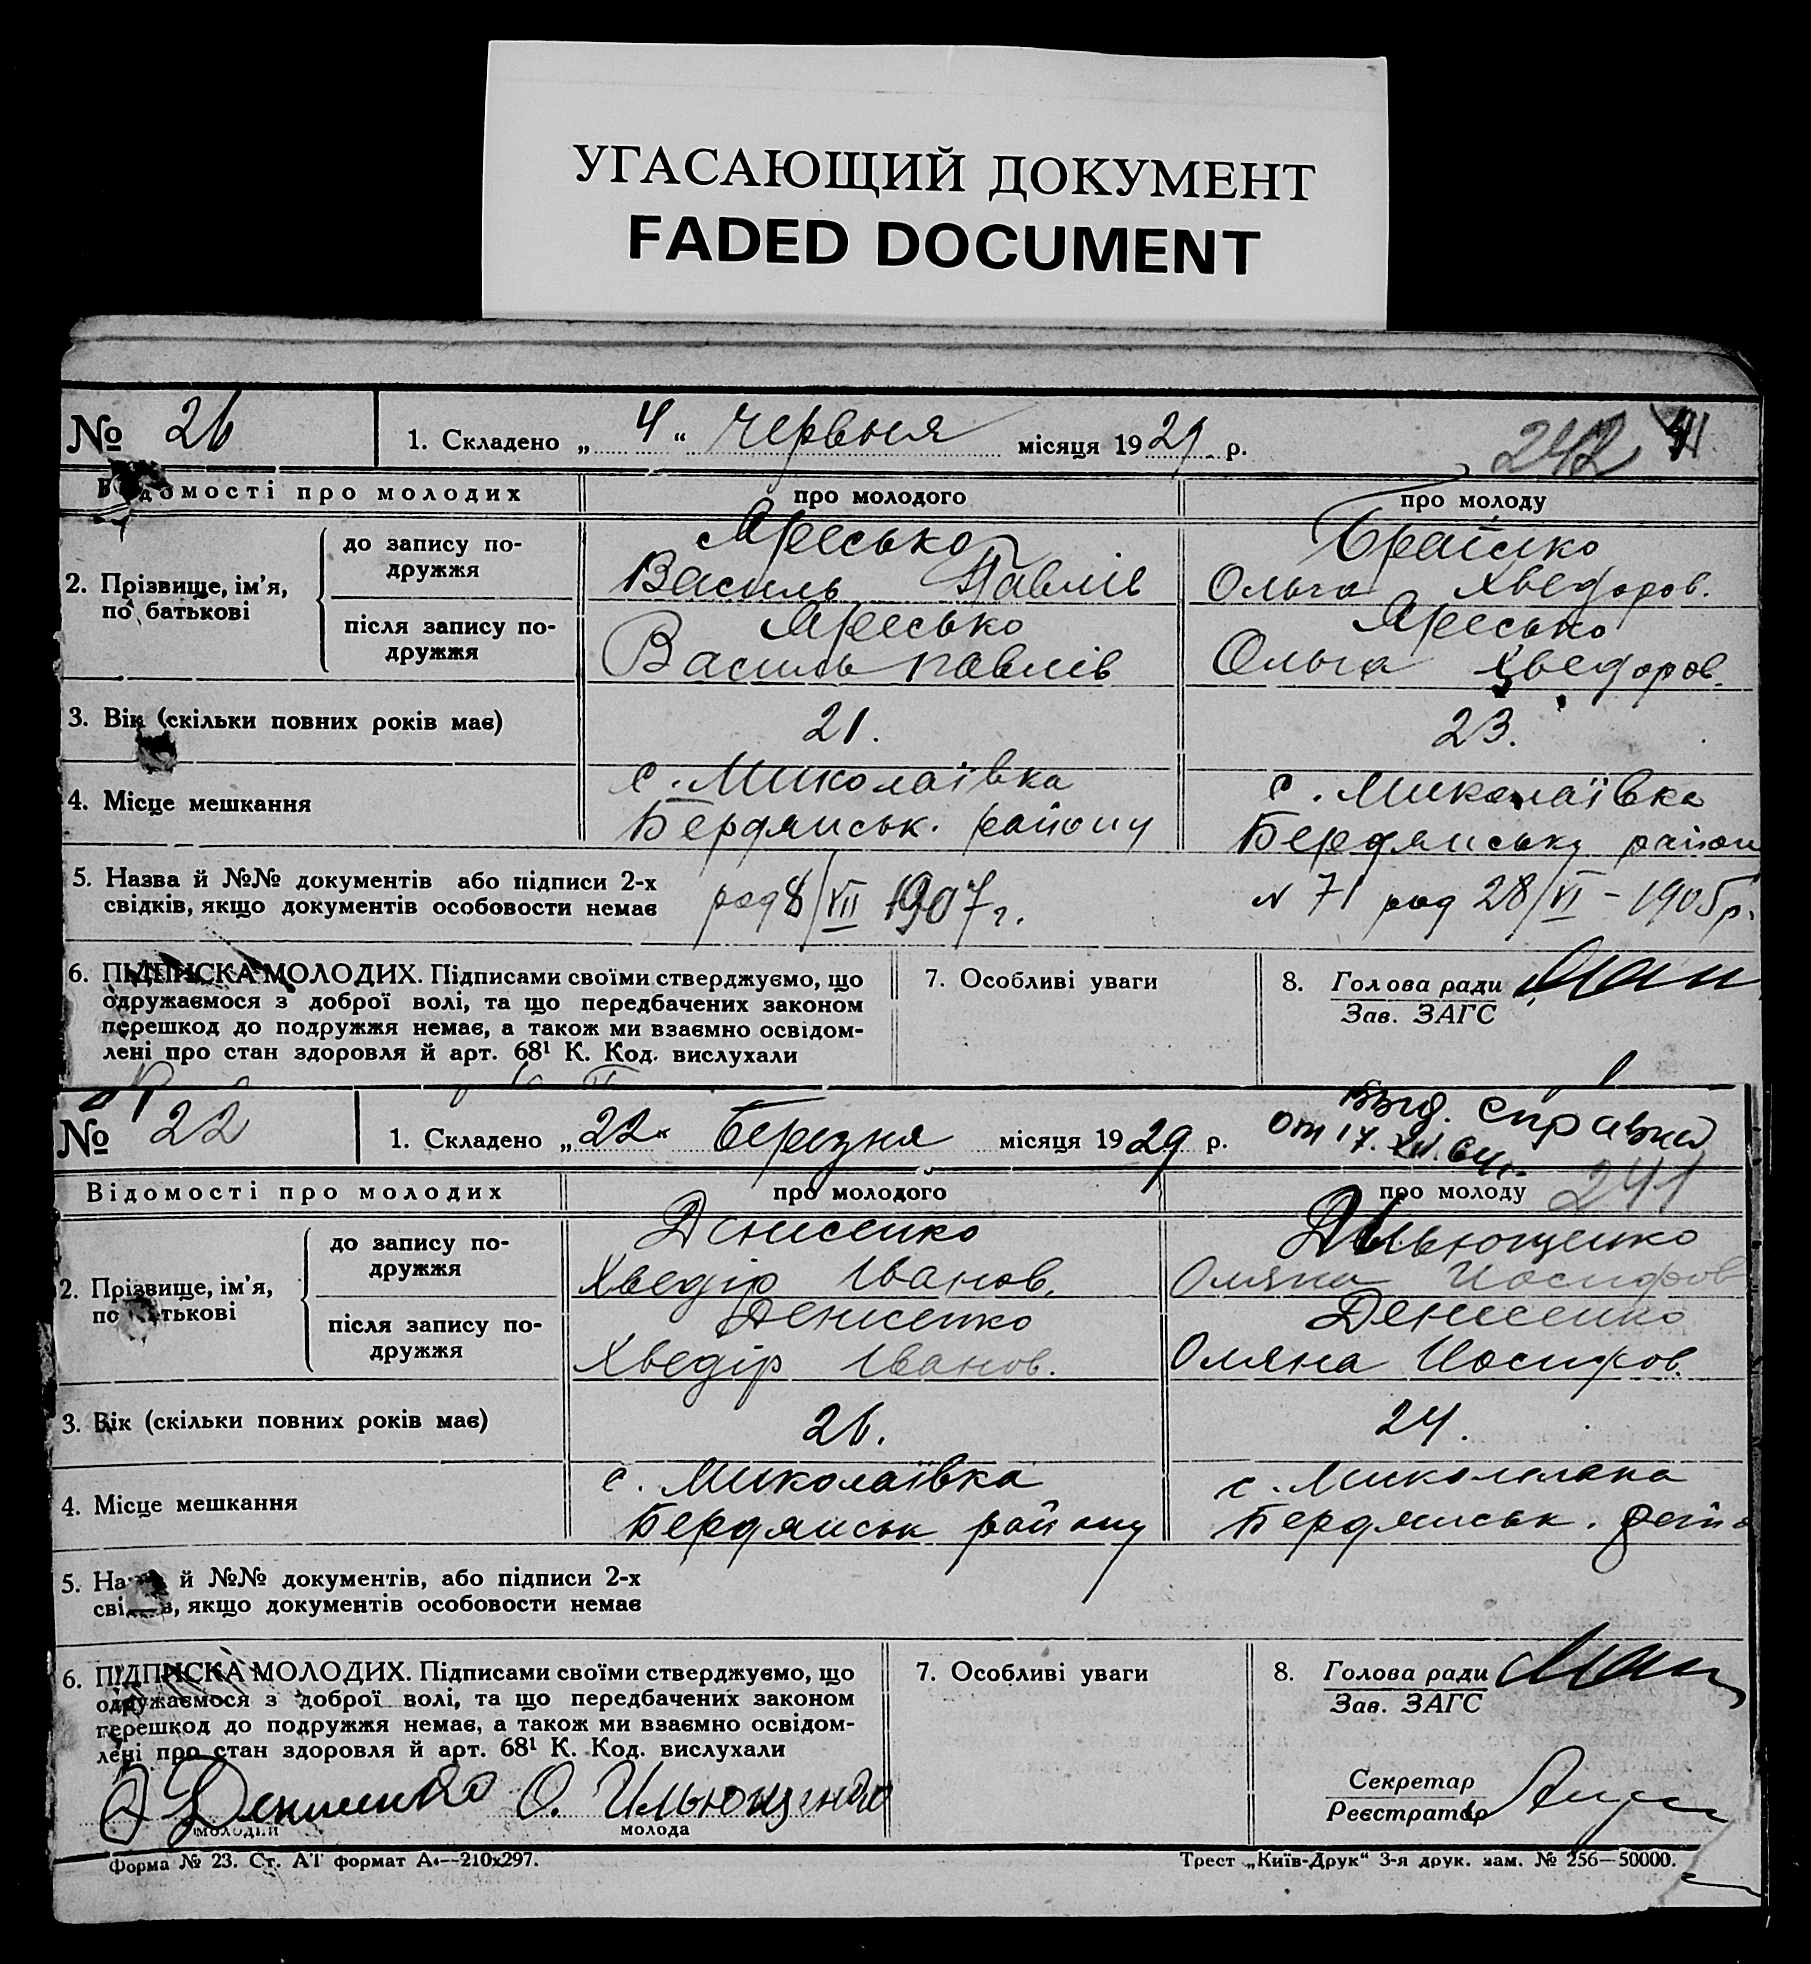 УГАСАЮЩИЙ ДОКУМЕНТ
FADED DOCUMENT
№ 26
1. Складено „ 4 “ червня місяця 1929 р.
242
Відомості про молодих
про молодого
про молоду
2. Прізвище, ім’я, по батькові
до запису подружжя
Яресько
Василь Павлів
Ольга Хведоров.
після запису подружжя
Яресько
Василь Павлів
Яресько
Ольга Хведоров.
3. Вік (скільки повних років має)
21.
23.
4. Місце мешкання
с. Миколаївка
Бердянськ. району
с. Миколаївка
Бердянську район
5. Назва й №№ документів або підписи 2-х
свідків, якщо документів особовости немає
род 8/VII 1907 г.
N 71 род 28/VI – 1905 р.
6. ПІДПИСКА МОЛОДИХ. Підписами своїми стверджуємо, що
одружаємося з доброї волі, та що передбачених законом
перешкод до подружжя немає, а також ми взаємно освідом-
лені про стан здоровля й арт. 68¹ К. Код. вислухали
7. Особливі уваги
8. Голова ради
Зав. ЗАГС
№ 22
1. Складено „ 22 “ березня місяця 1929 р.
Выд. справка
от 17. XII. 64 г.
241
Відомості про молодих
про молодого
про молоду
2. Прізвище, ім’я,
по батькові
до запису по-
дружжя
Денисенко
Хведір Іванов.
Ильющенко
Оляна Иосифов
після запису по-
дружжя
Денисенко
Хведір Іванов.
Денисенко
Оляна Иосифов.
3. Вік (скільки повних років має)
26.
24.
4. Місце мешкання
с. Миколаївка
Бердянськ району
с.
Бердянськ. райо
5. Назва й №№ документів, або підписи 2-х
свідків, якщо документів особовости немає
6. ПІДПИСКА МОЛОДИХ. Підписами своїми стверджуємо, що
одружаємося з доброї волі, та що передбачених законом
перешкод до подружжя немає, а також ми взаємно освідом-
лені про стан здоровля й арт. 68¹ К. Код. вислухали
Денисенко О. Ильющенко
молодий
молода
7. Особливі уваги
8. Голова ради
Зав. ЗАГС
Секретар
Реєстратор
Форма № 23. Ст. АТ формат А₄—210х297.
Трест „Київ-Друк“ 3-я друк. зам. № 256—50000.